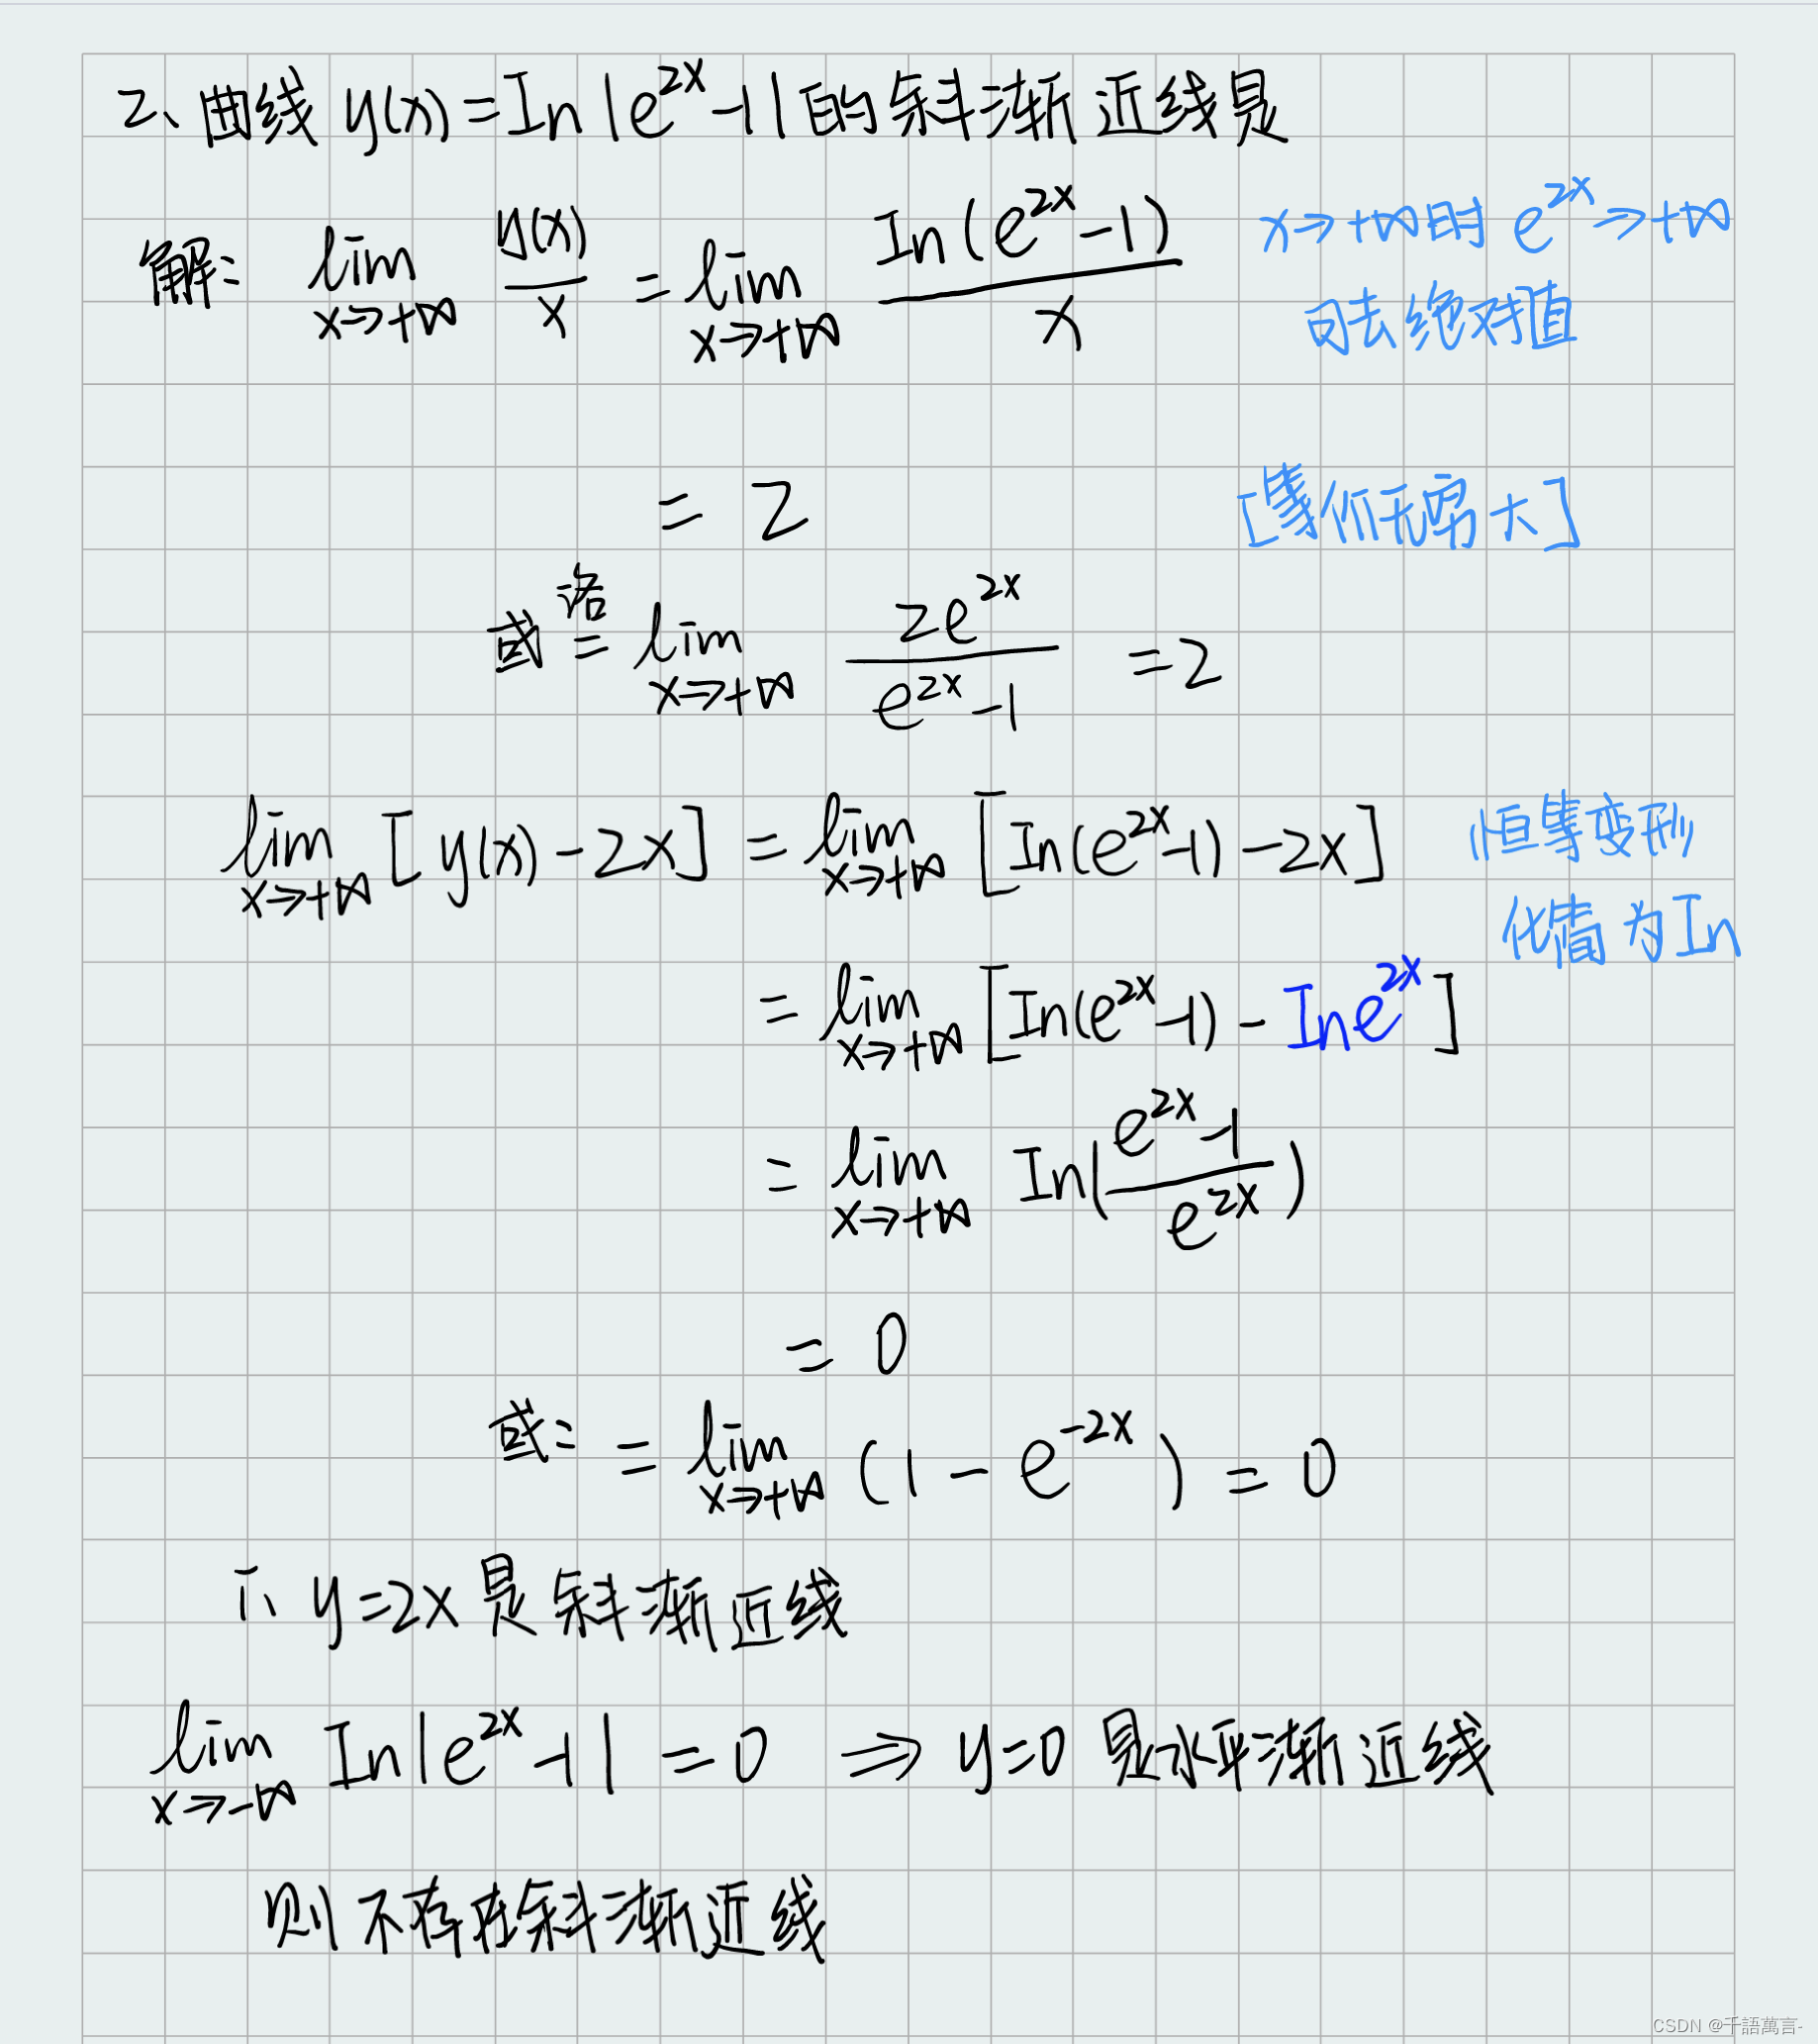 2、曲线 y(x)=In|e^{2x}-1|的斜渐近线是
解: lim_{x→+∞} y(x)/x = lim_{x→+∞} In(e^{2x}-1)/x x→+∞时 e^{2x}→+∞
可去绝对值
= 2 [等价无穷大]
或 洛= lim_{x→+∞} 2e^{2x}/(e^{2x}-1) =2
lim_{x→+∞} [y(x)-2x] = lim_{x→+∞} [In(e^{2x}-1)-2x] 恒等变形
化 为In
= lim_{x→+∞} [In(e^{2x}-1)-Ine^{2x}]
= lim_{x→+∞} In((e^{2x}-1)/e^{2x})
= 0
或: = lim_{x→+∞} (1-e^{-2x}) = 0
∴ y=2x是斜渐近线
lim_{x→-∞} In|e^{2x}-1| =0 ⇒ y=0 是水平渐近线
则不存在斜渐近线
CSDN @千語萬言-